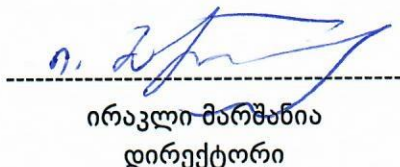 ირაკლი მარშანია
დირექტორი